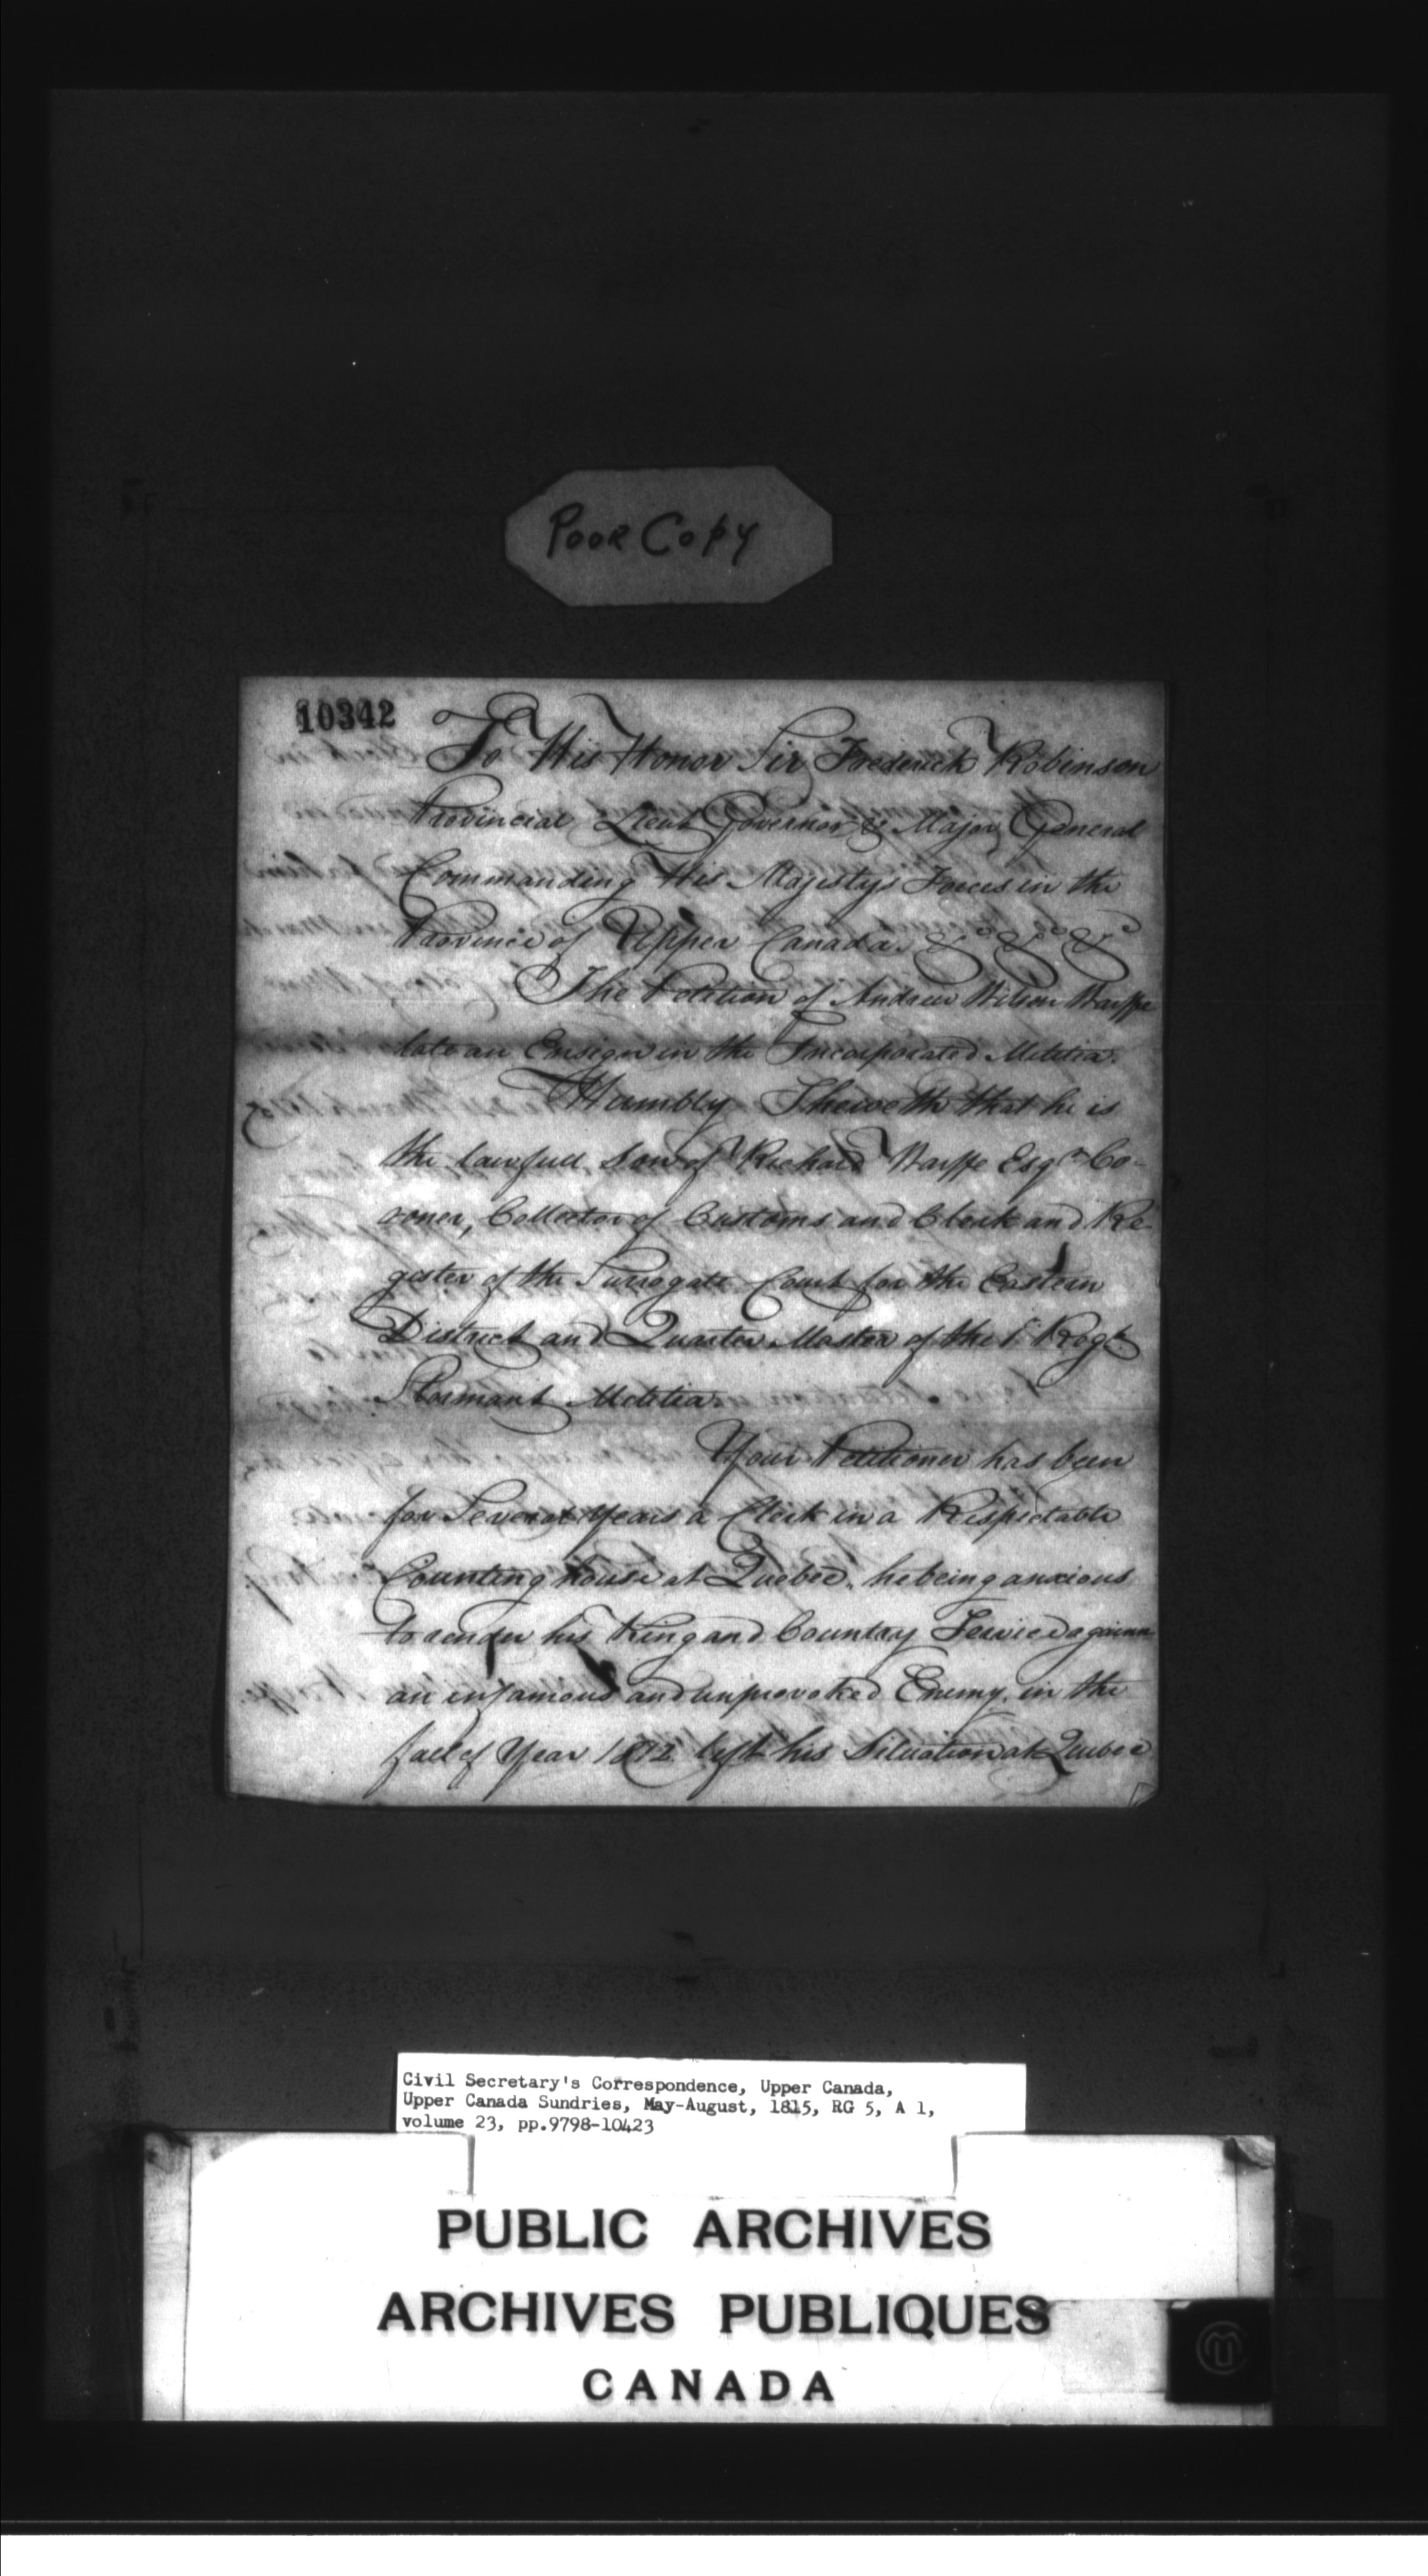 Poor Copy
10342
To His Honor Sir Frederick Robinson
Provincial Lieut Governor & Major General
Commanding His Majestys Forces in the
Province of Upper Canada. &c &c &c
The Petition of Andrew Wilson Warffe
late an Ensign in the Incorporated Militia.
Humbly Sheweth that he is
the lawfull Son of Richard Warffe Esqr. Co-
roner, Collector of Customs and Clerk and Re-
gister of the Surrogate Court for the Eastern
District and Quarter Master of the 1st Regt
Stormont Militia.
Your Petitioner has been
for Several Years a Clerk in a Respectable
Counting house at Quebec, he being anxious
to render his King and Country Service against
an infamous and unprovoked Enemy, in the
fall of Year 1812 left his Situation at Quebec
Civil Secretary's Correspondence, Upper Canada,
Upper Canada Sundries, May-August, 1815, RG 5, A 1,
volume 23, pp.9798-10423
PUBLIC ARCHIVES
ARCHIVES PUBLIQUES
CANADA